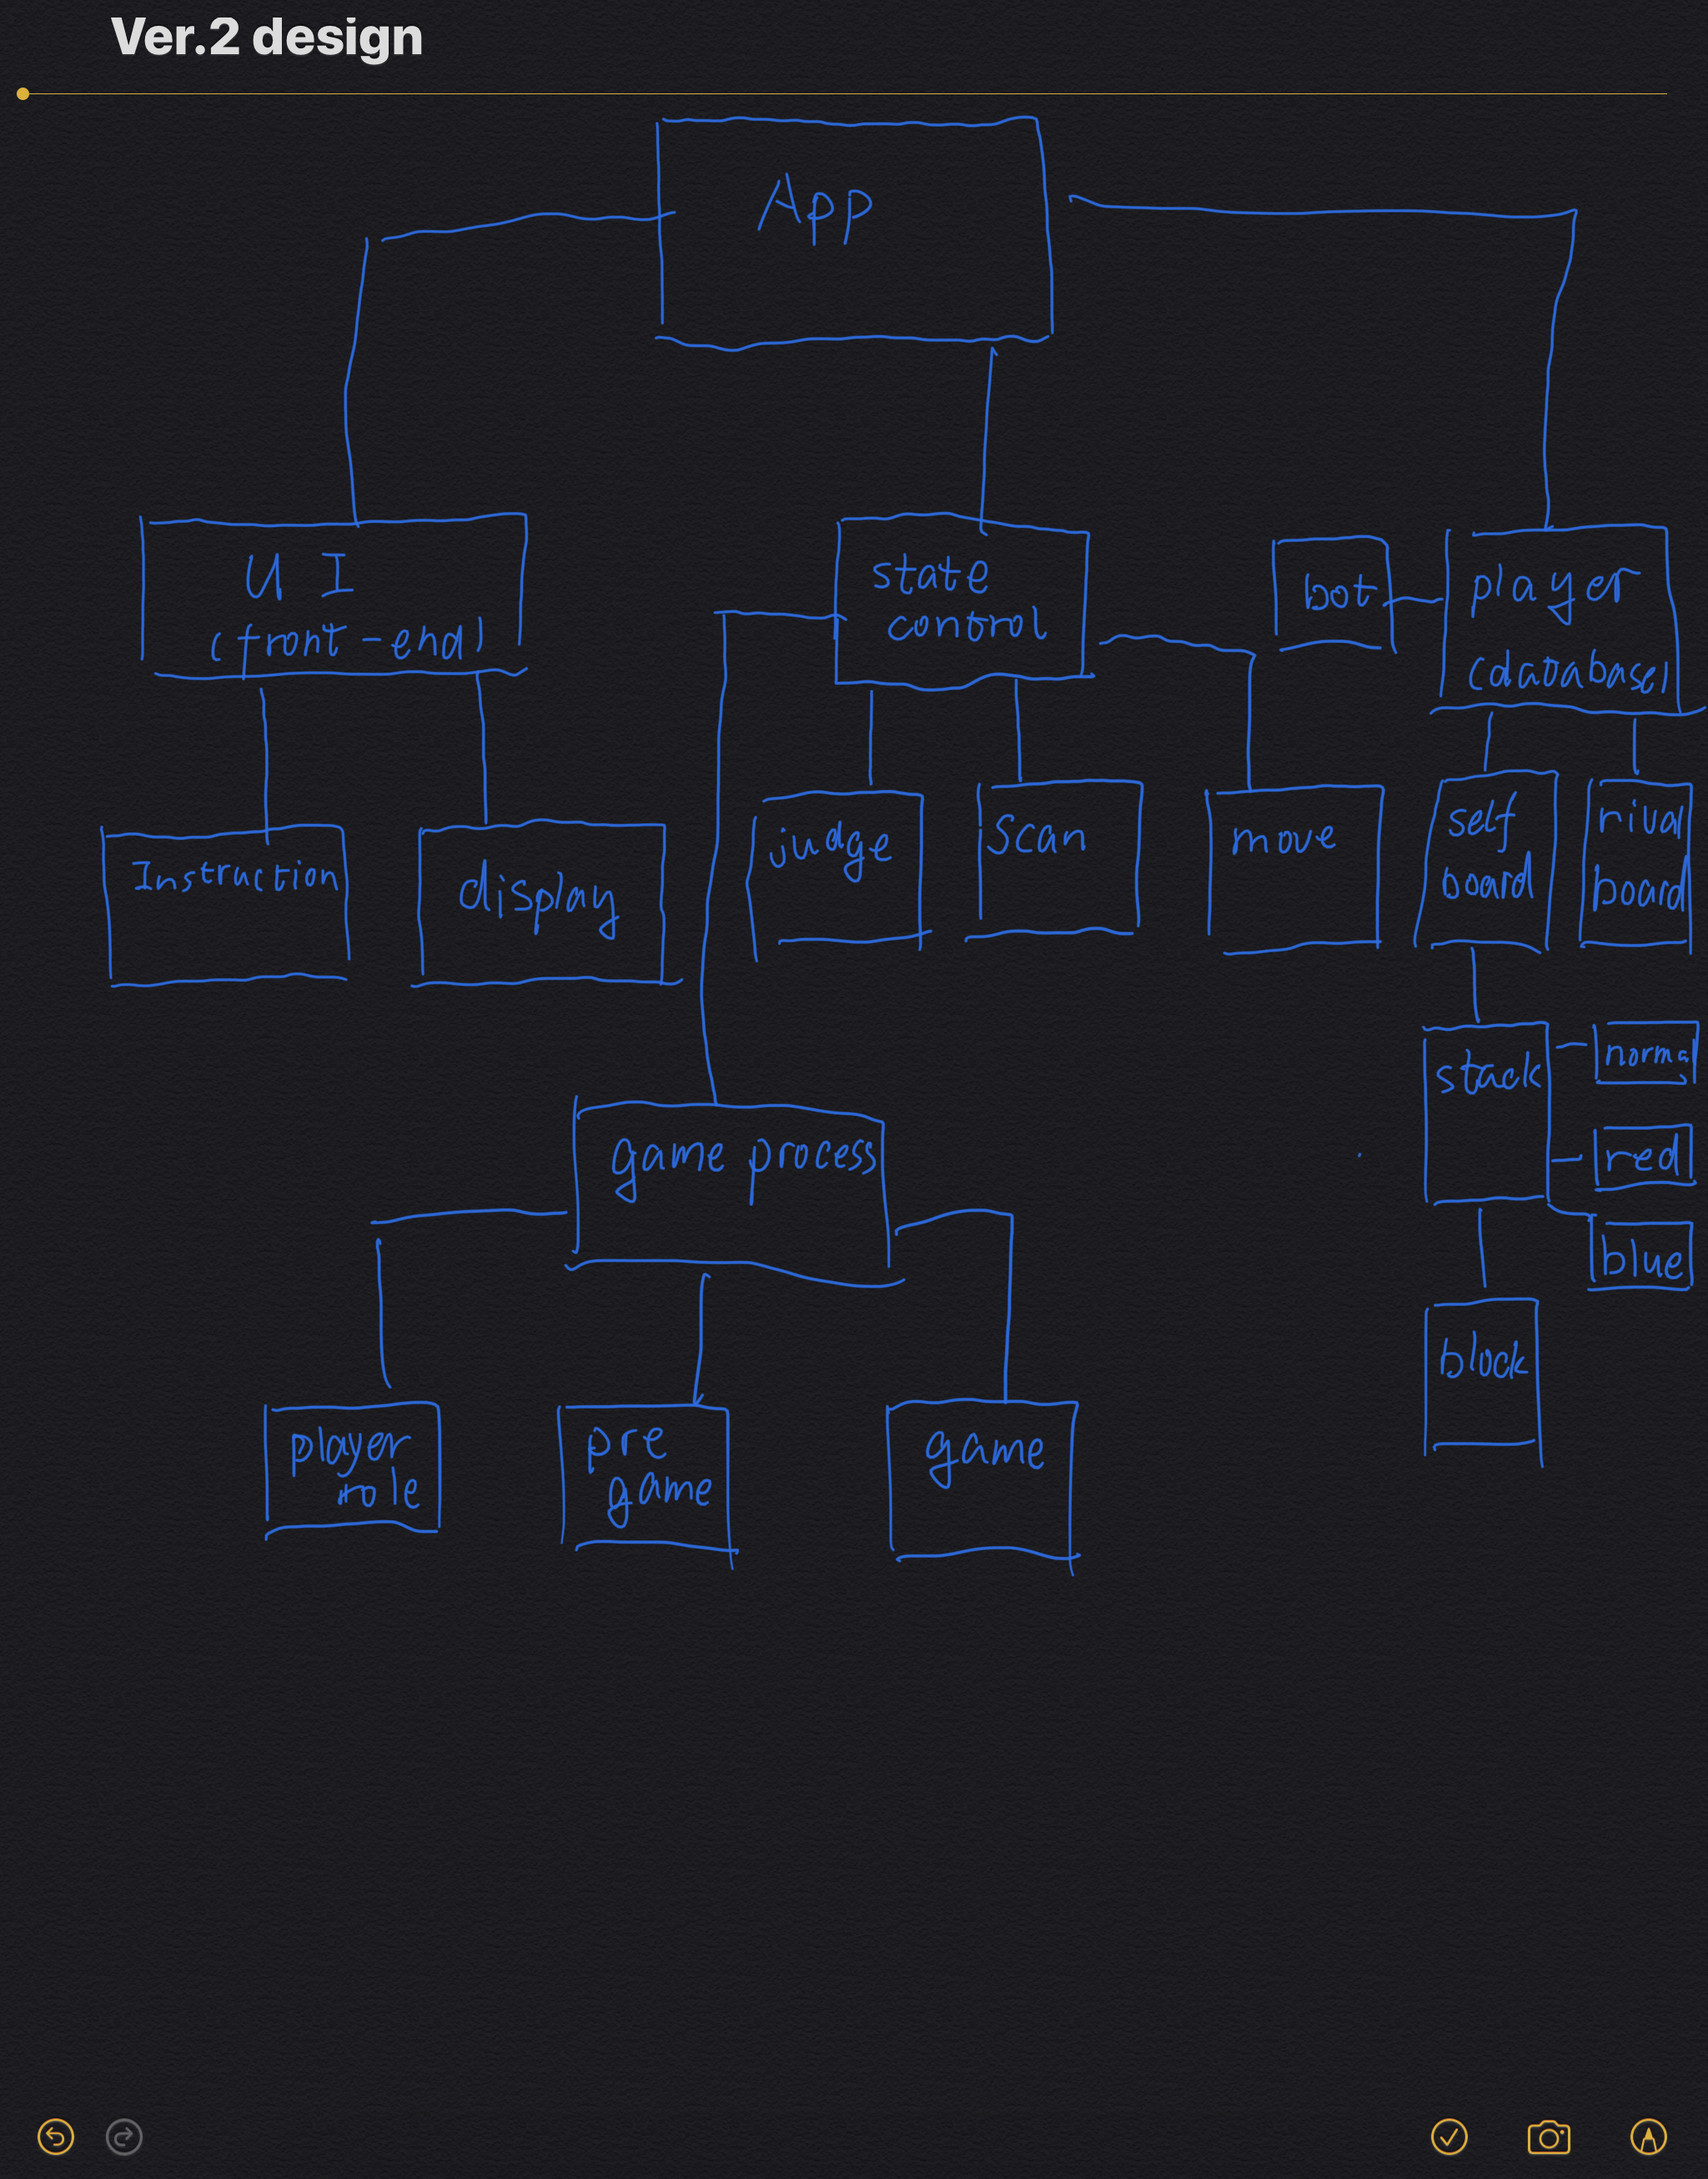 Ver.2 design
App
UI
(front-end)
state
control
bot
player
(database)
Instraction
display
judge
Scan
move
self
board
rival
board
stack
norma
red
blue
block
game process
player
role
pre
game
game